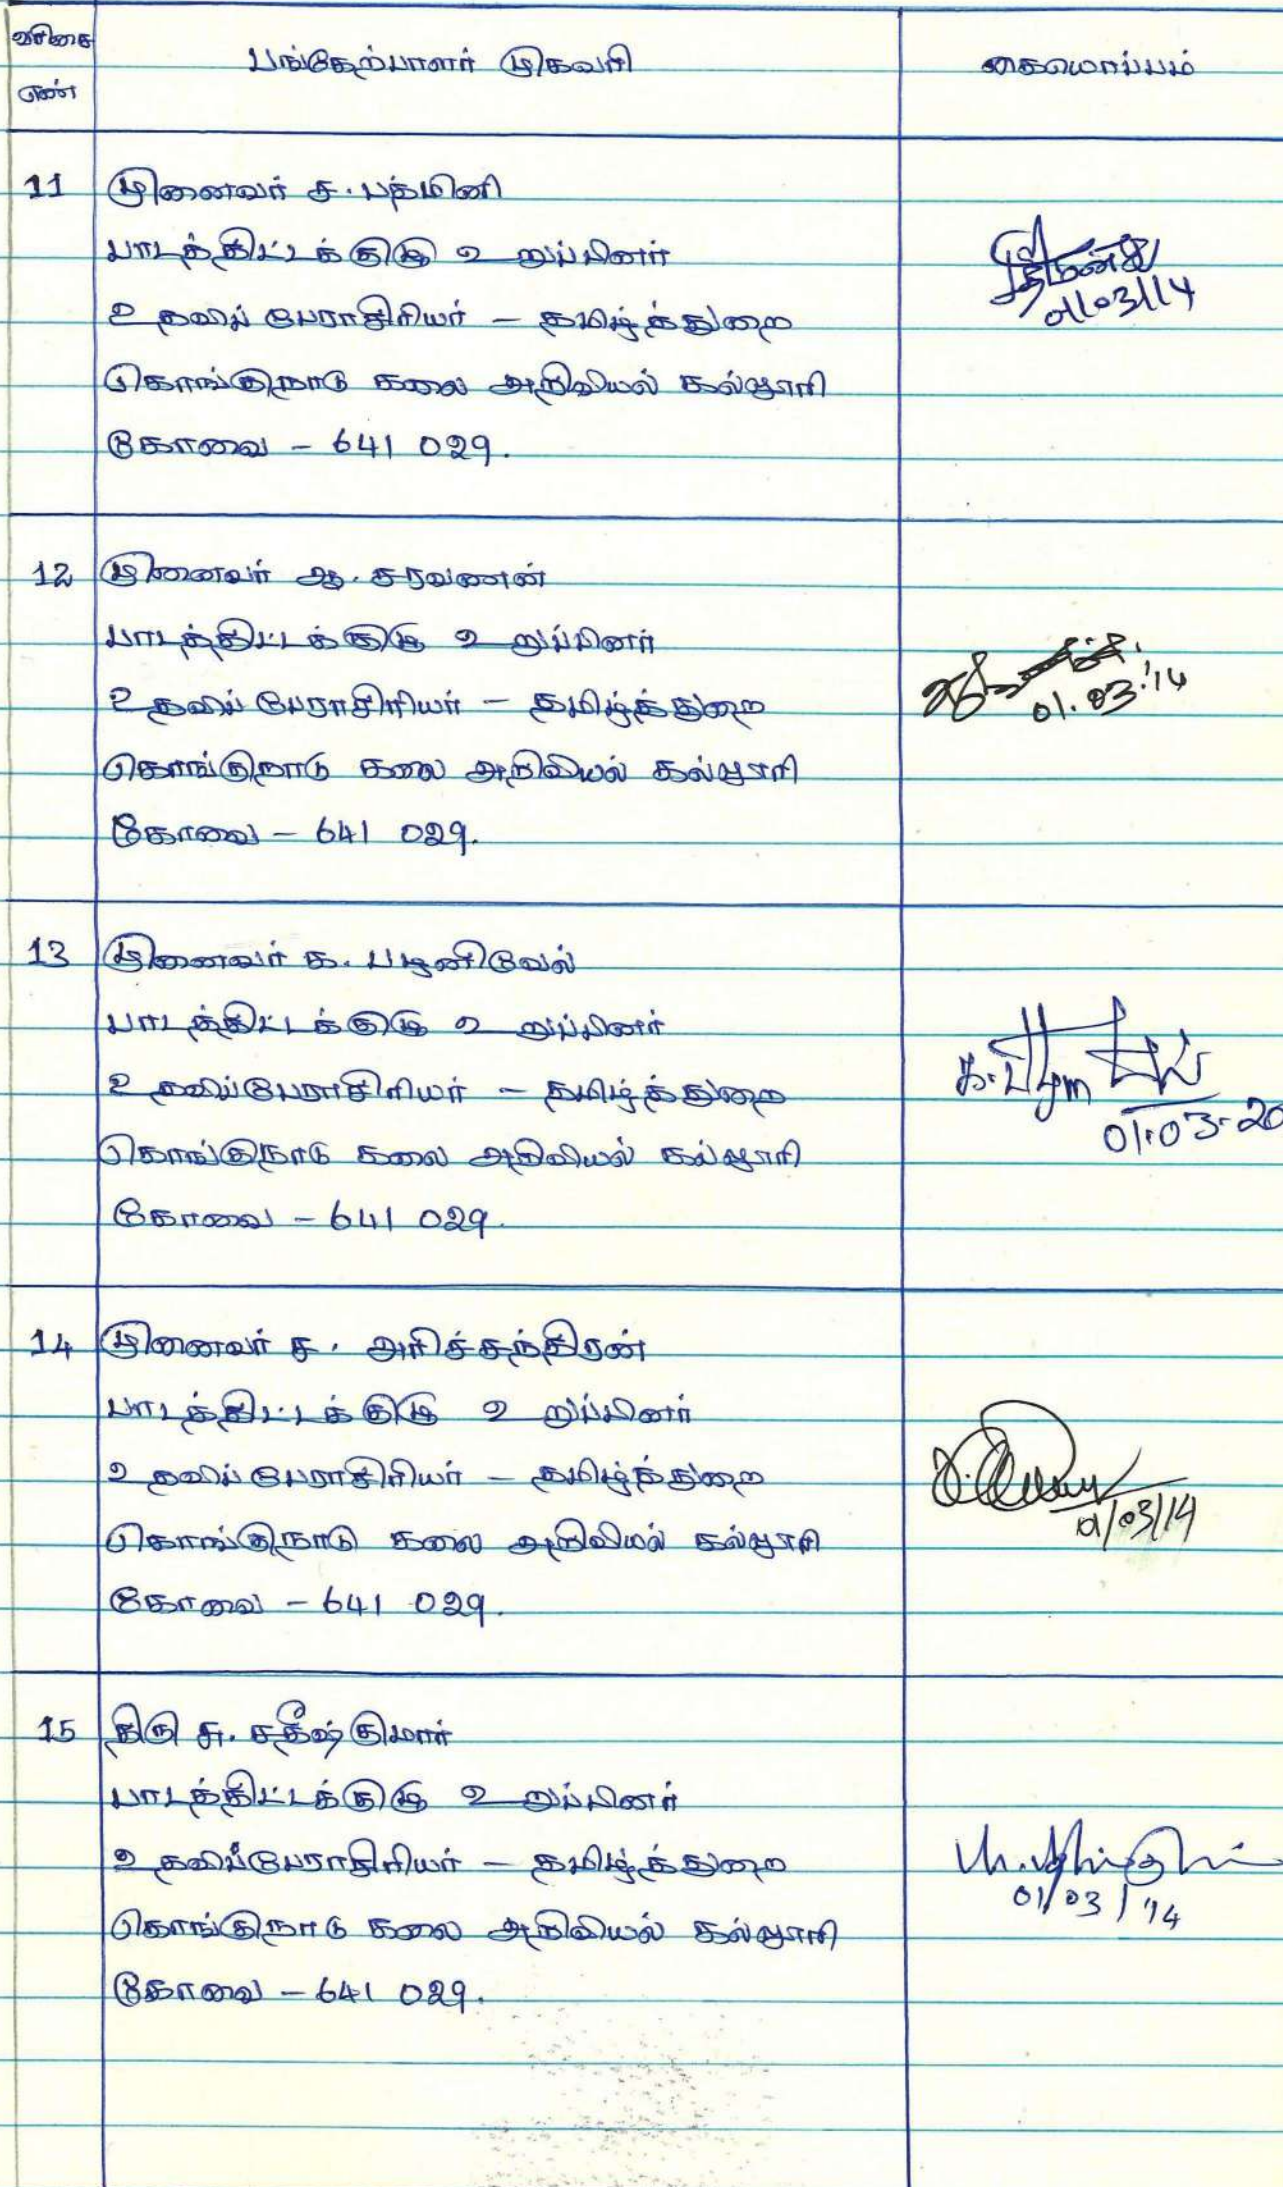 வரிசை
எண்
பங்கேற்பாளர் முகவரி
கையொப்பம்
11 முனைவர் ச. பத்மினி
பாடத்திட்டக்குழு உறுப்பினர்
உதவிப் பேராசிரியர் – தமிழ்த்துறை
01/03/14
கொங்குநாடு கலை அறிவியல் கல்லூரி
கோவை – 641 029.
12 முனைவர் ஆ. சரவணன்
பாடத்திட்டக்குழு உறுப்பினர்
உதவிப் பேராசிரியர் – தமிழ்த்துறை
01.03.'14
கொங்குநாடு கலை அறிவியல் கல்லூரி
கோவை – 641 029.
13 முனைவர் க. பழனிவேல்
பாடத்திட்டக்குழு உறுப்பினர்
உதவிப்பேராசிரியர் – தமிழ்த்துறை
க. பழனிவேல்
01.03.20
கொங்குநாடு கலை அறிவியல் கல்லூரி
கோவை – 641 029.
14 முனைவர் ச. அரிச்சந்திரன்
பாடத்திட்டக்குழு உறுப்பினர்
உதவிப் பேராசிரியர் – தமிழ்த்துறை
01/03/14
கொங்குநாடு கலை அறிவியல் கல்லூரி
கோவை – 641 029.
15 திரு சு. சதீஷ்குமார்
பாடத்திட்டக்குழு உறுப்பினர்
உதவிப்பேராசிரியர் – தமிழ்த்துறை
01/03/'14
கொங்குநாடு கலை அறிவியல் கல்லூரி
கோவை – 641 029.